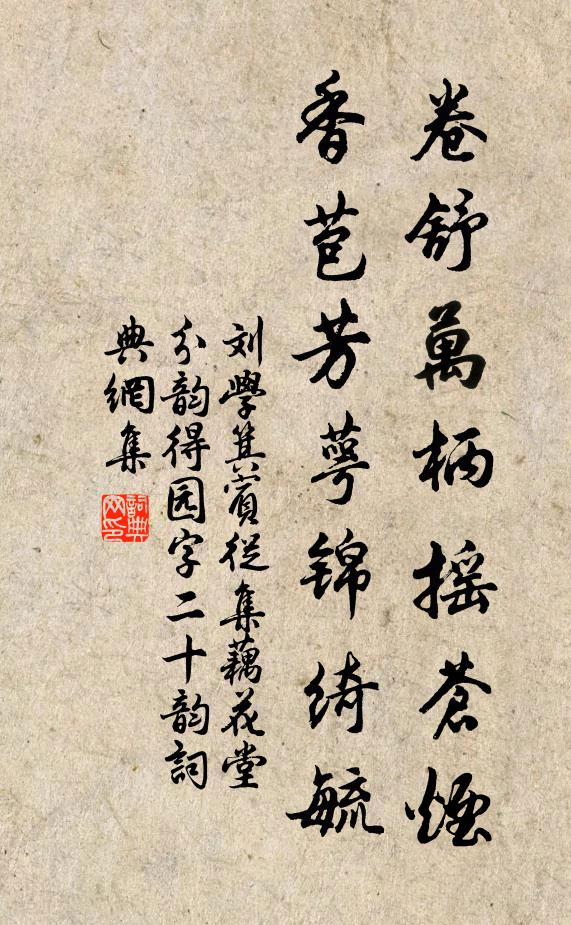 卷舒萬柄摇蒼煙
香苞芳萼錦綺毓
刘學箕賓從集藕花堂
分韵得园字二十韵詞
典網集
詞典网印